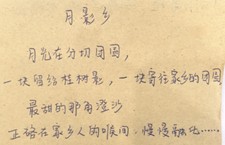 月影乡
月光在分切团圆，
一块留给桂树影，一块寄往家乡的团圆
最甜的那角澄沙
正硌在家乡人的喉间，慢慢融化……